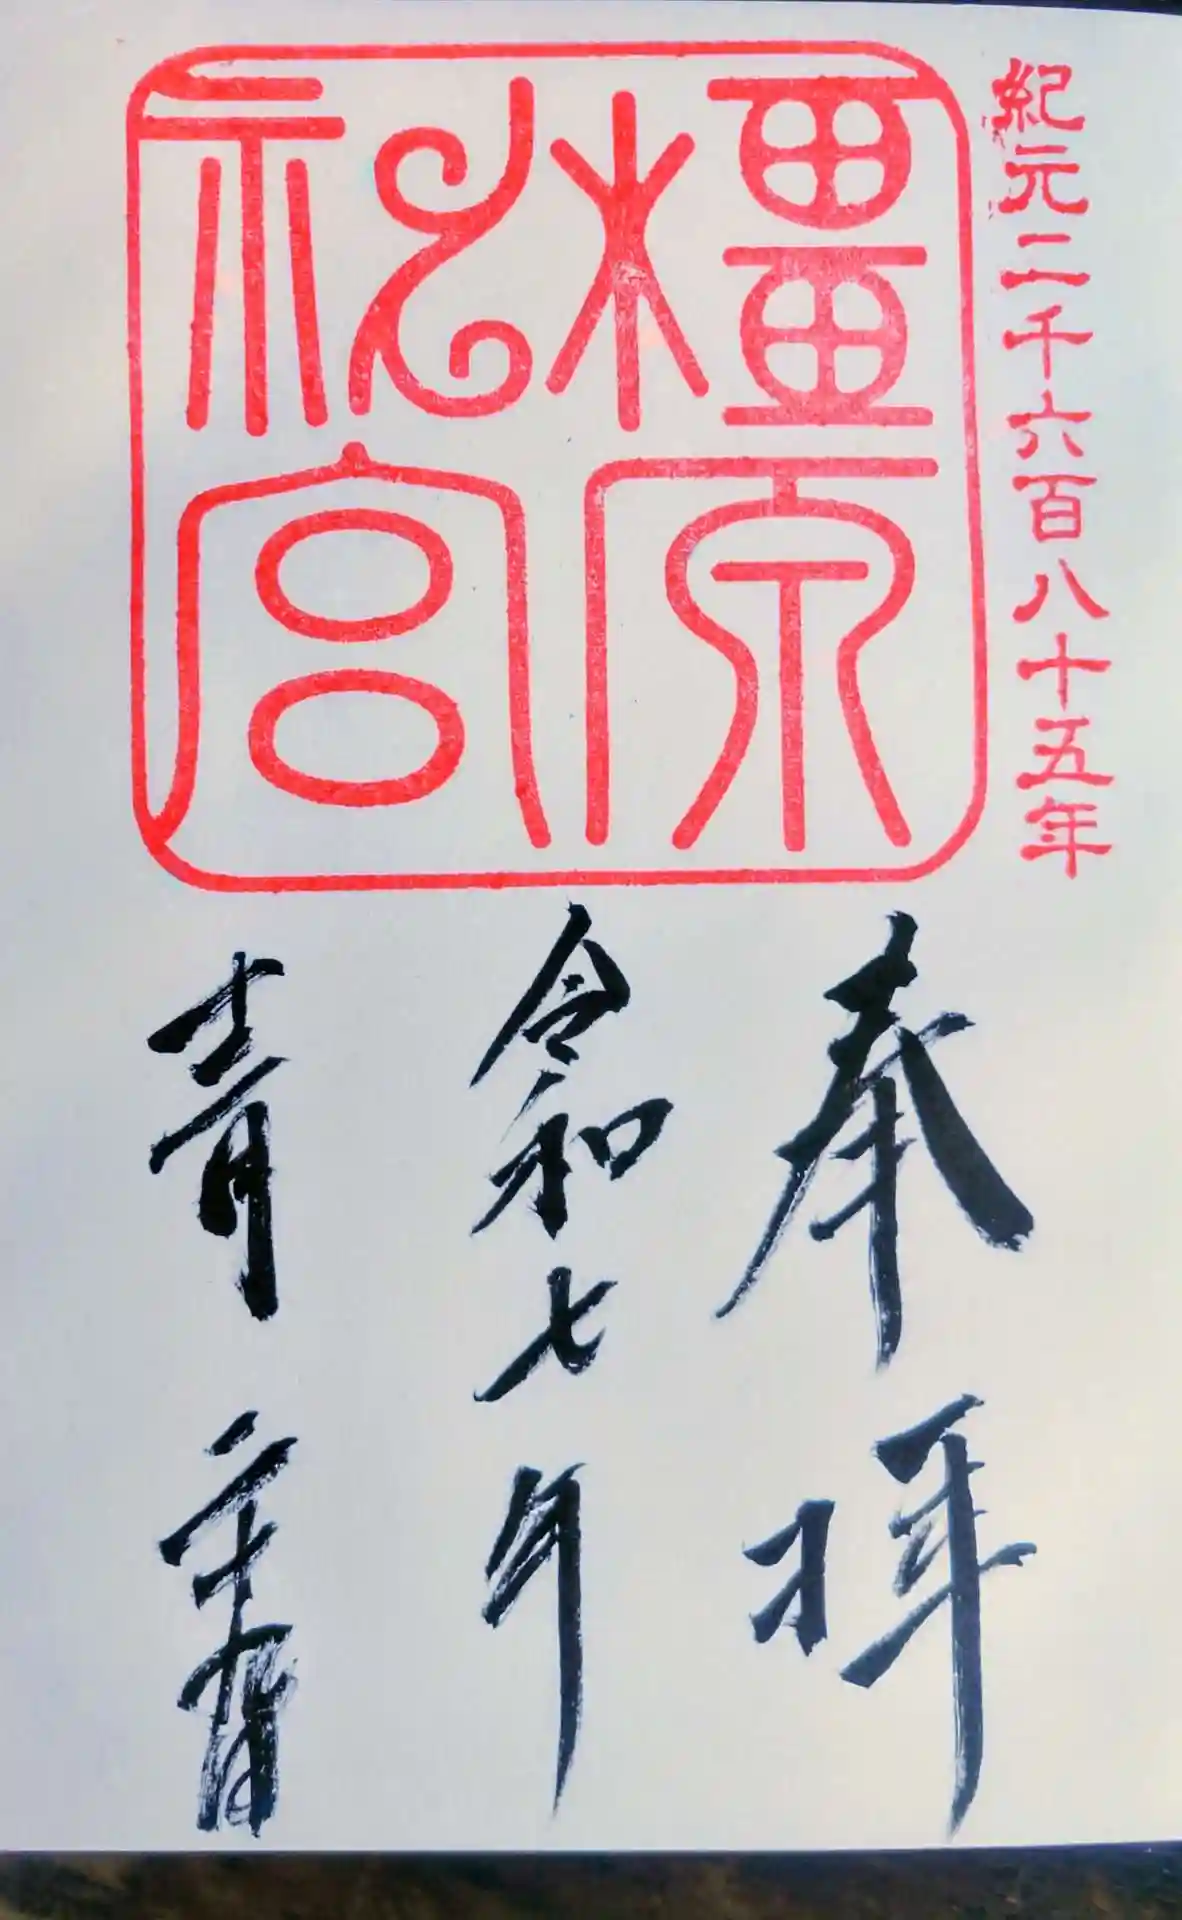 紀元二千六百八十五年
橿原
神宮
奉拝
令和七年
二十九日